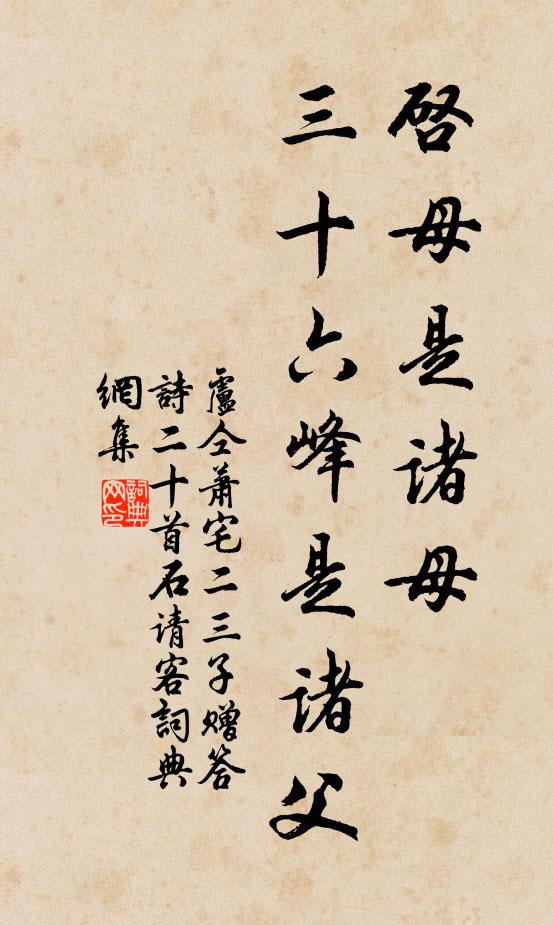 啓母是諸母
三十六峰是諸父
盧仝蕭宅二三子赠答
詩二十首石请客詞典
網集
詞典网印